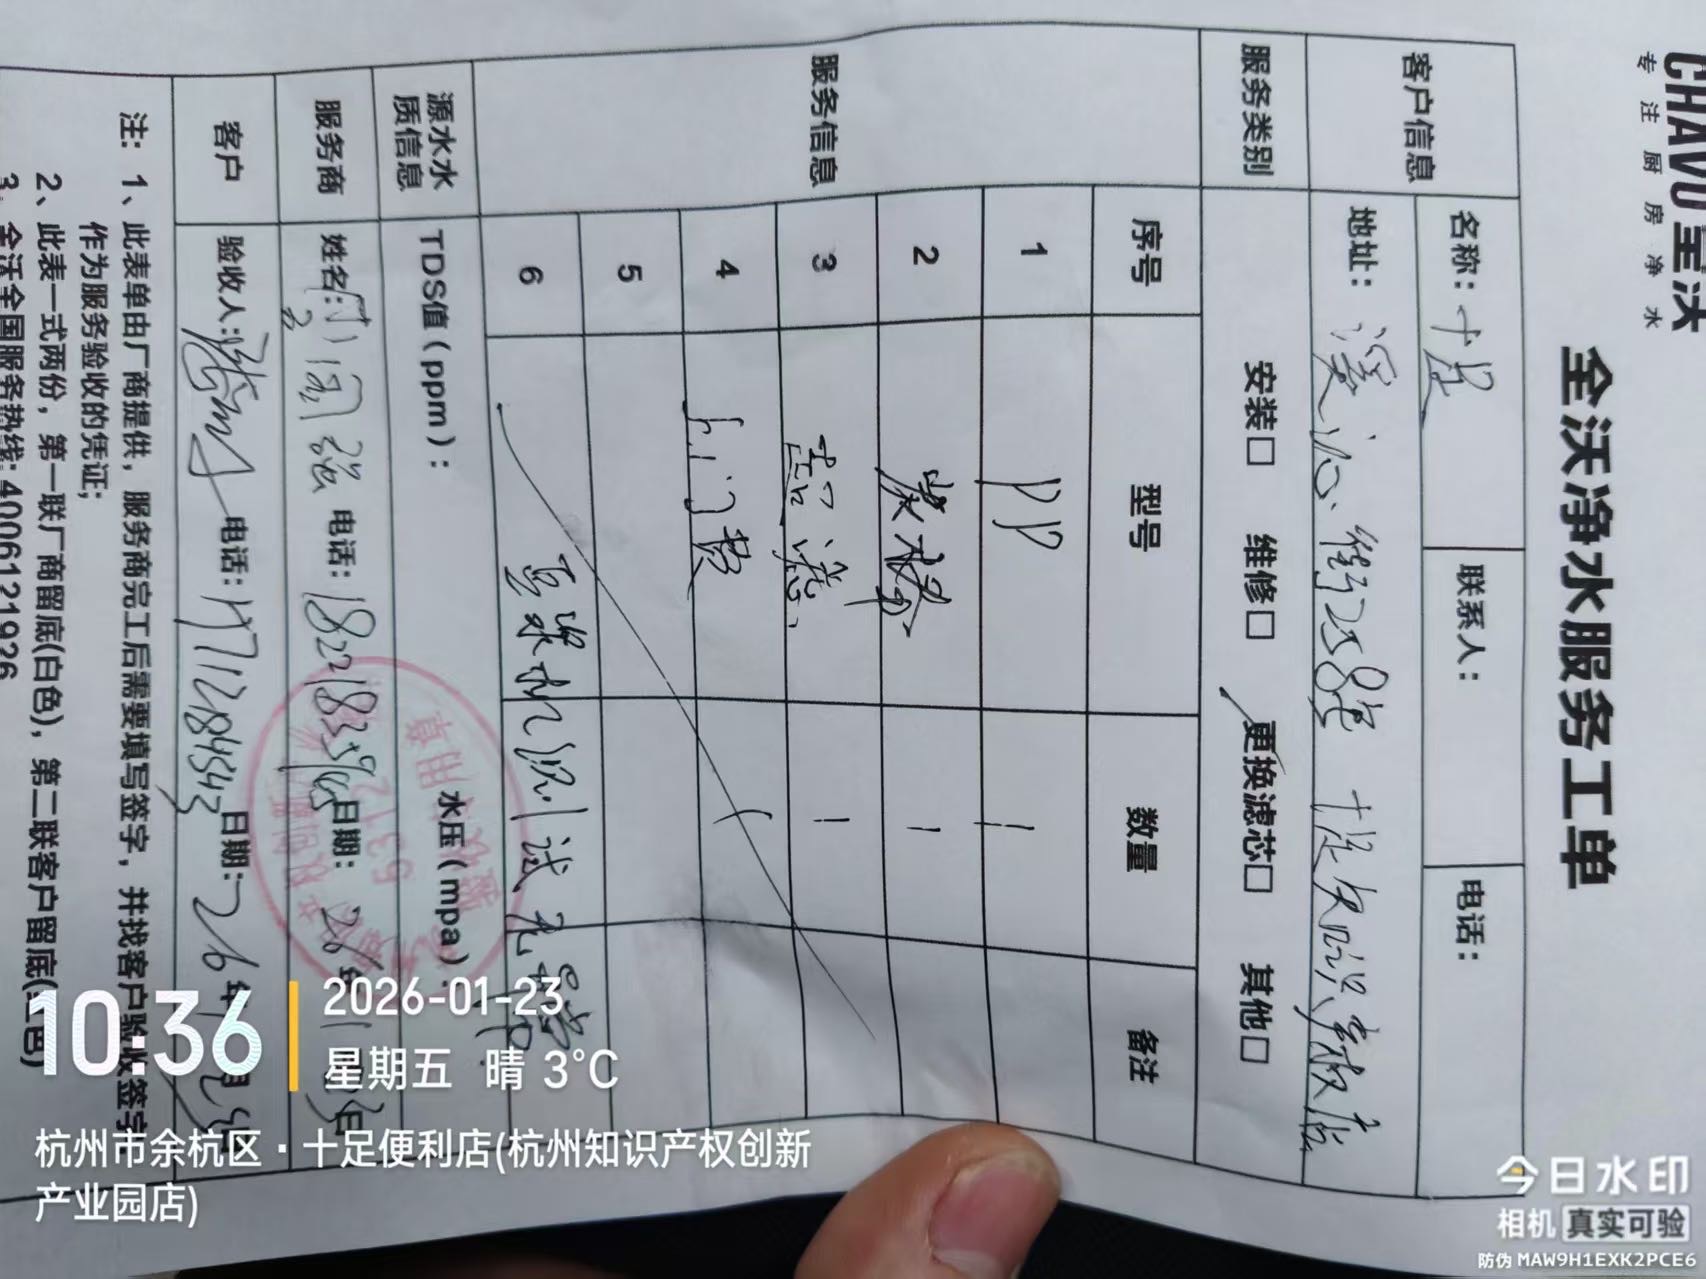 CHAVO全沃
专注厨房净水
全沃净水服务工单
客户信息
名称：十足
联系人：
电话：
地址：溪沁街258号 十足知识产权店
服务类别
安装□ 维修□ 更换滤芯□ 其他□
服务信息
序号 型号 数量 备注
1 PP 1
2 炭棒 1
3 1
4 上门费 1
5
6 测试无异常
源水水质信息
TDS值（ppm）：
水压（mpa）
服务商
姓名： 强 电话： 日期：26年1月23日
客户
验收人： 电话： 日期：26年1月23日
注：1、此表单由厂商提供，服务商完工后需要填写签字，并找客户验收签字
作为服务验收的凭证；
2、此表一式两份，第一联厂商留底(白色)，第二联客户留底(红色)
3、全沃全国服务热线：4006121926
10:36
2026-01-23
星期五 晴 3°C
杭州市余杭区·十足便利店(杭州知识产权创新
产业园店)
今日水印
相机 真实可验
防伪 MAW9H1EXK2PCE6